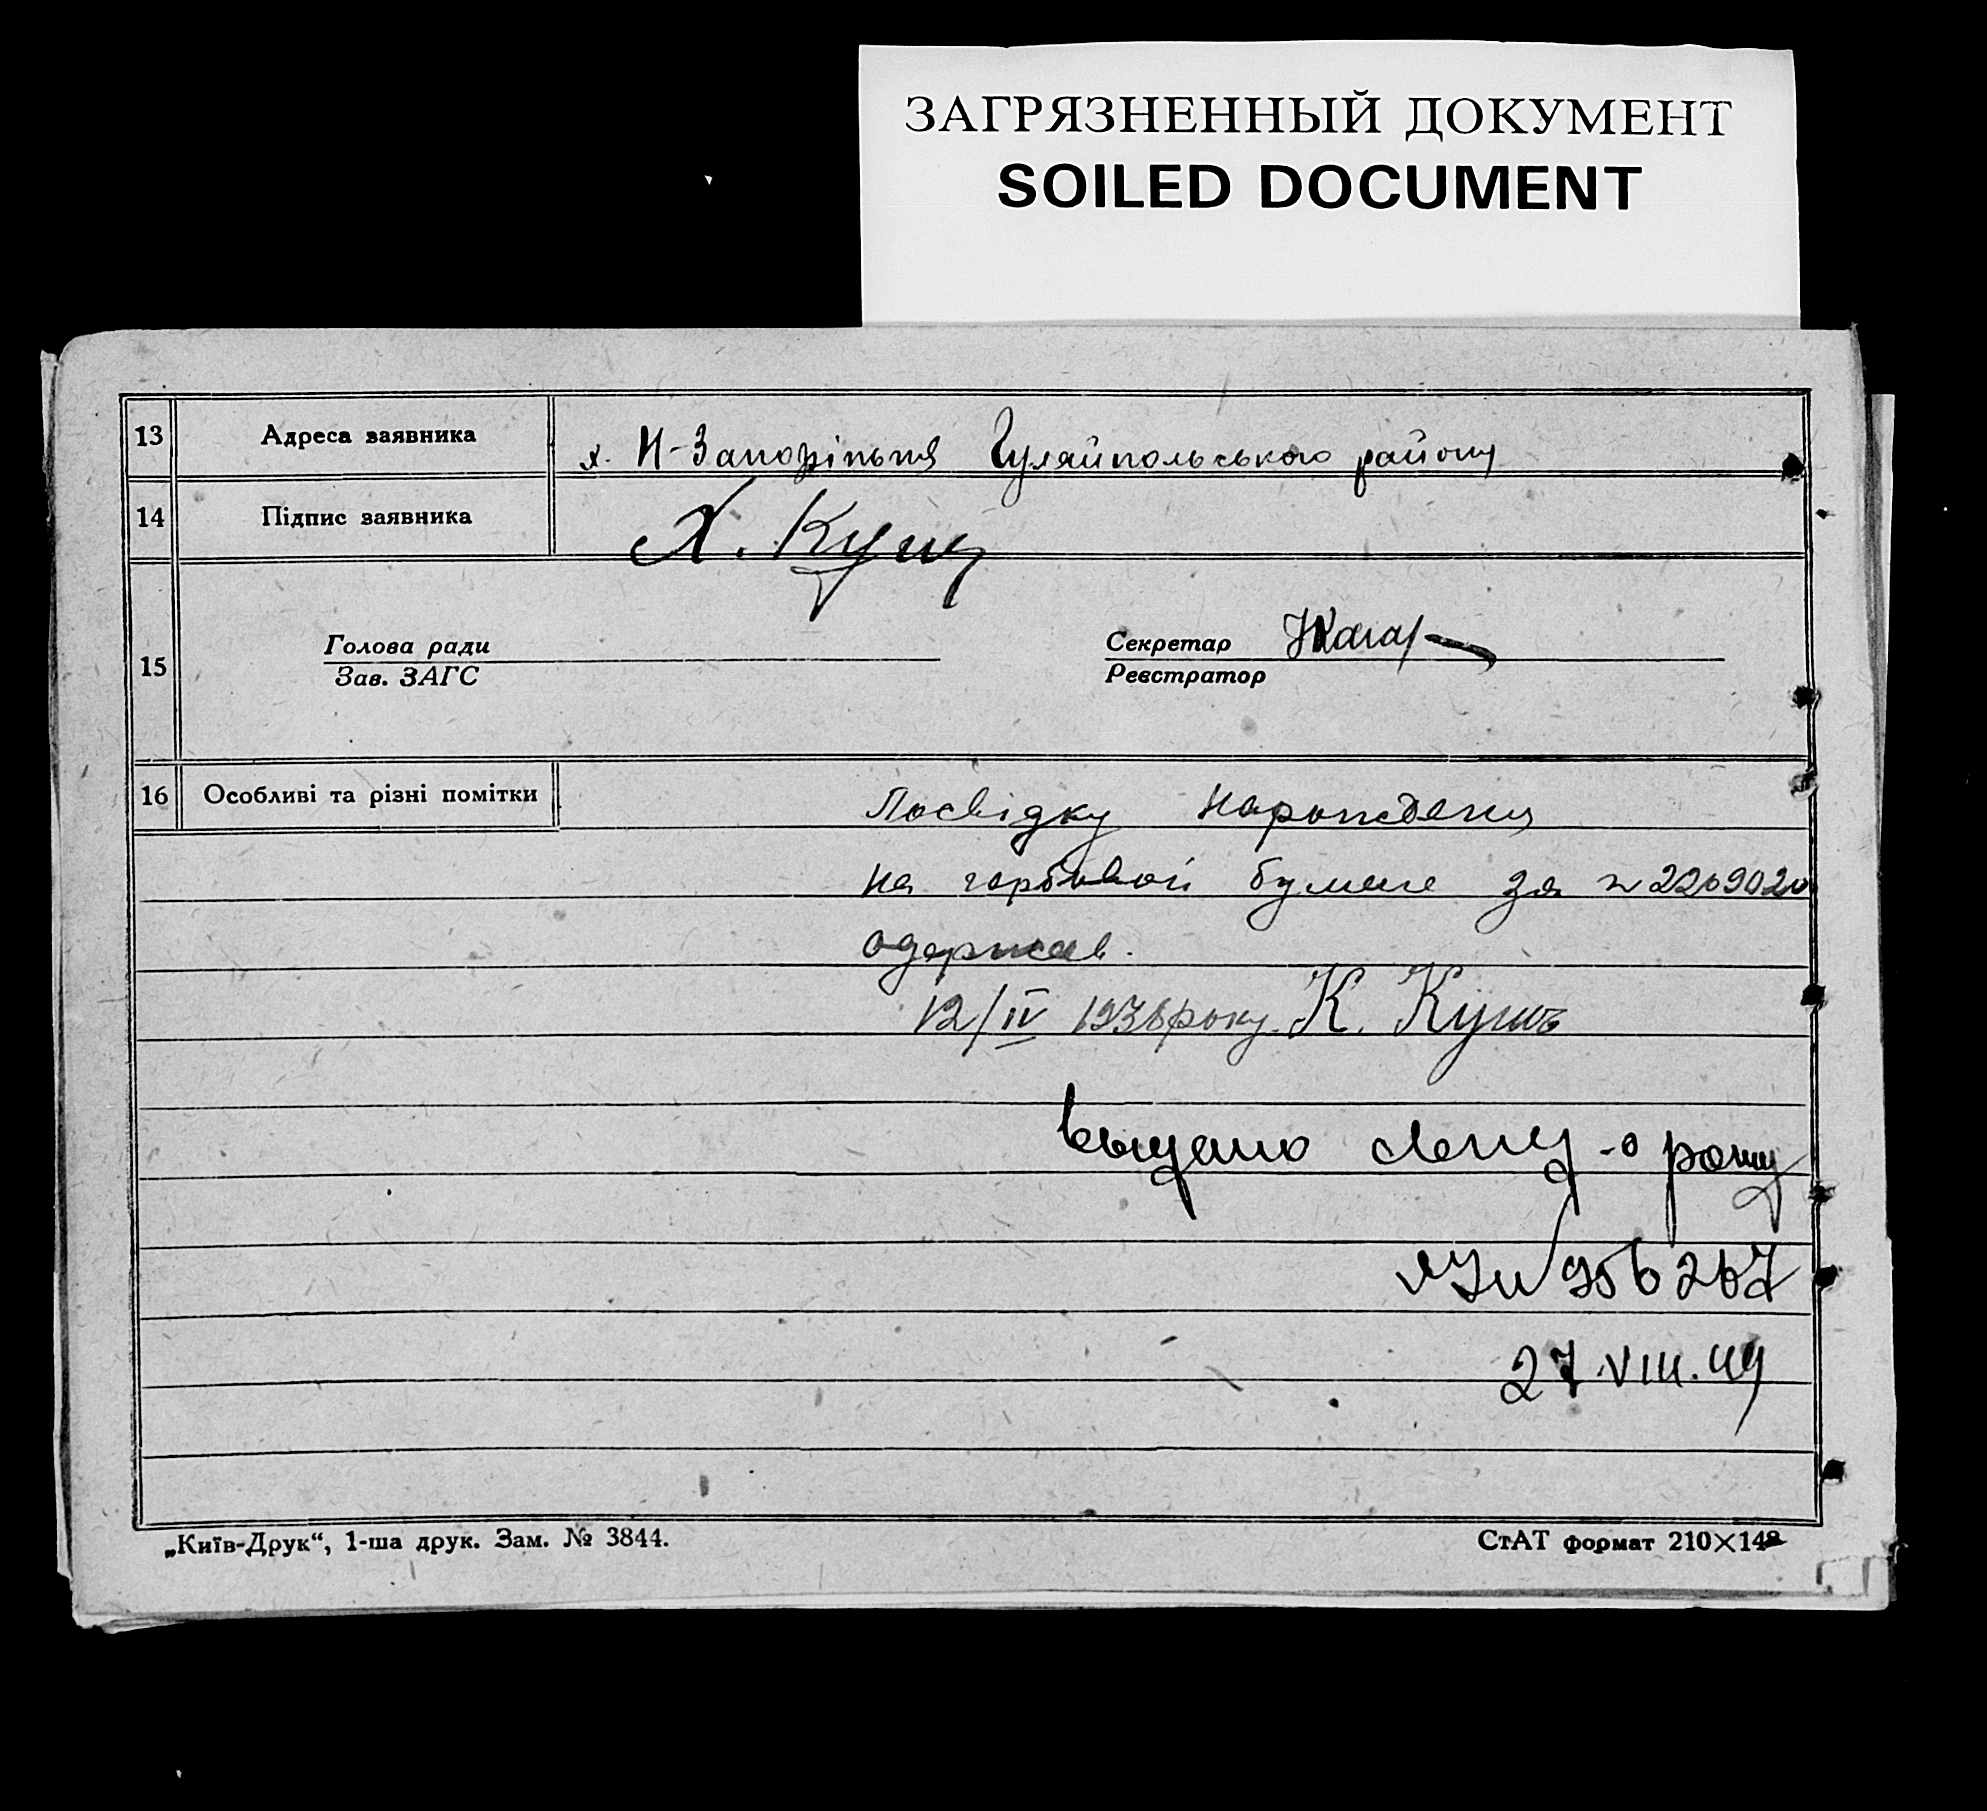 ЗАГРЯЗНЕННЫЙ ДОКУМЕНТ
SOILED DOCUMENT
13 Адреса заявника х. Н-Запоріжжя Гуляйпольського району
14 Підпис заявника Х. Кущ
15 Голова ради Секретар
Зав. ЗАГС Реєстратор
16 Особливі та різні помітки Посвідку нарождення
на гербовой бумаге за № 2209020
одержав.
12/IV 1938 року. К. Кущь
выдано
956267
27.VIII.49
„Київ-Друк“, 1-ша друк. Зам. № 3844. СтАТ формат 210×148